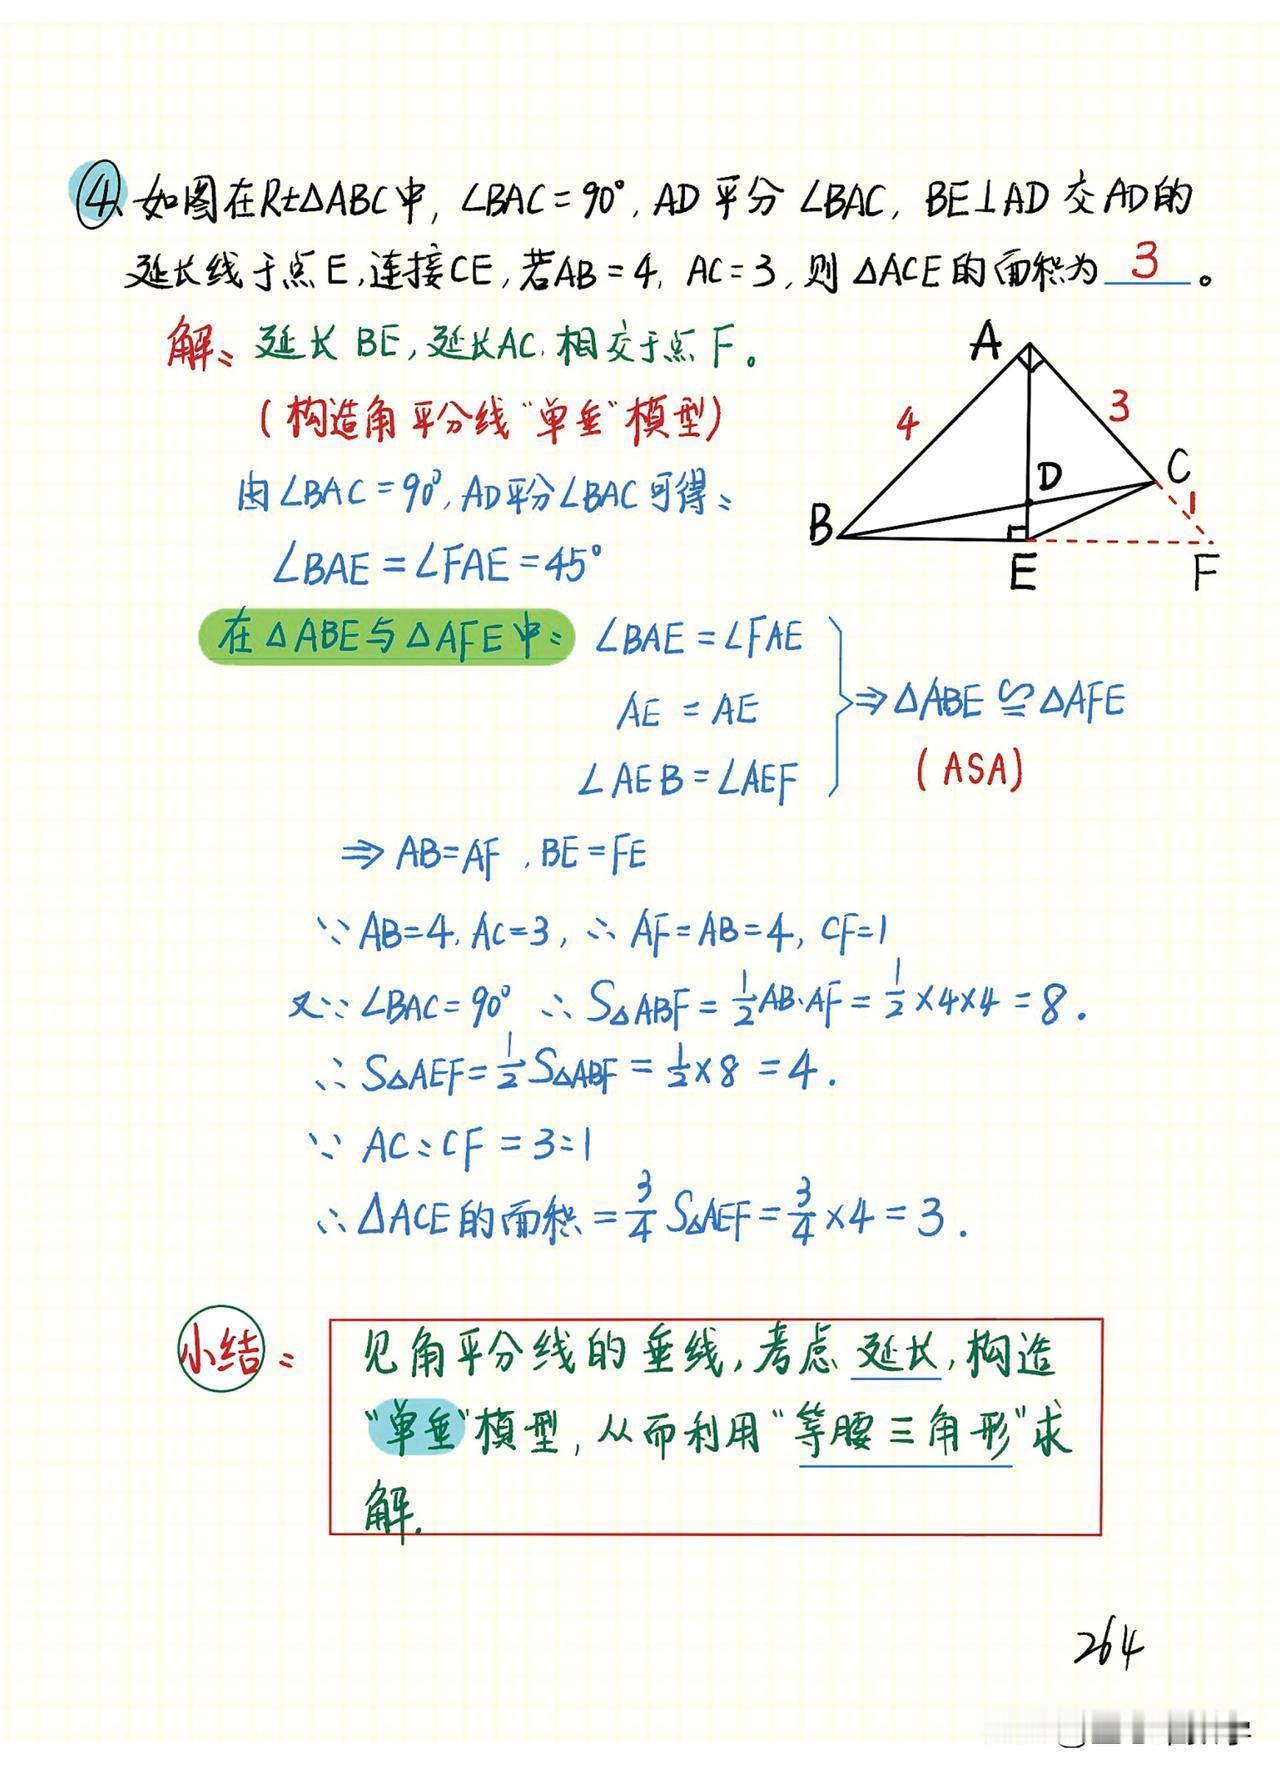 ④、如图在Rt△ABC中, ∠BAC=90°, AD平分∠BAC, BE⊥AD交AD的
延长线于点E,连接CE,若AB=4, AC=3,则△ACE的面积为 3 。
解: 延长BE,延长AC.相交于点F。
(构造角平分线"单垂"模型)
由∠BAC=90°, AD平分∠BAC可得:
∠BAE=∠FAE=45°
A
4
3
D
C
1
B
E
F
在△ABE与△AFE中: ∠BAE=∠FAE
AE=AE
⇒△ABE≌△AFE
∠AEB=∠AEF
(ASA)
⇒AB=AF, BE=FE
∵AB=4, AC=3, ∴AF=AB=4, CF=1
又∵∠BAC=90° ∴S△ABF=1/2AB·AF=1/2×4×4=8.
∴S△AEF=1/2S△ABF=1/2×8=4.
∵AC:CF=3:1
∴△ACE的面积=3/4S△AEF=3/4×4=3.
小结: 见角平分线的垂线,考虑延长,构造
"单垂"模型,从而利用"等腰三角形"求
解.
264